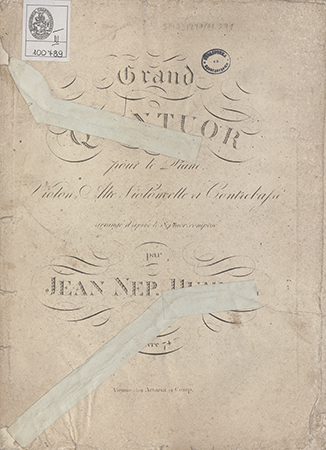 II
100789
Grand
QUINTUOR
pour le Piano
Violon, Alto Violoncelle et Contrebasse
arrangé d'après le Septuor, composé
par
JEAN NEP.
74
Vienne chez Artaria et Comp.